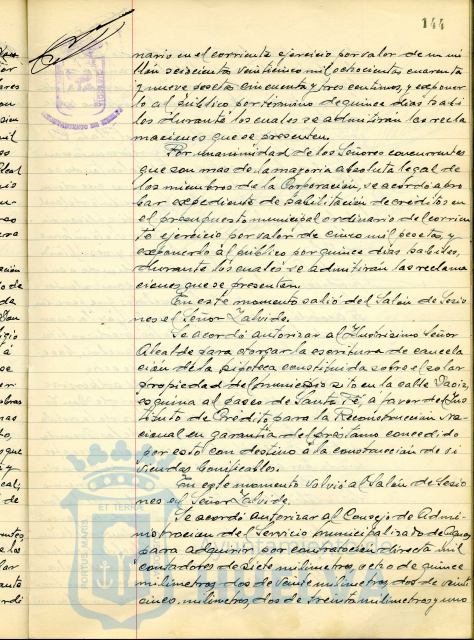 144
nario en el corriente ejercicio por valor de un mi
llón seiscientas veinticinco mil ochocientas cuarenta
y nueve pesetas cincuenta y tres centimos, y exponer
lo al público por término de quince dias habi
les durante los cuales se admitirán las recla
maciones que se presenten.
Por unanimidad de los Señores concurrentes
que son mas de la mayoria absoluta legal de
los miembros de la Corporación, se acordó apro
bar expediente de habilitación de créditos en
el presupuesto municipal ordinario del corrien
te ejercicio por valor de cinco mil pesetas, y
exponerlo al público por quince dias habiles,
durante los cuales se admitirán las reclama
ciones que se presenten.
En este momento salió del Salón de Sesio
nes el Señor Zalvide.
Se acordó autorizar al Ilustrisimo Señor
Alcalde para otorgar la escritura de cancela
ción de la hipoteca constituida sobre el solar
propiedad del municipio sito en la calle Daoiz,
esquina al paseo de Santa Fé, a favor del Ins
tituto de Crédito para la Reconstrucción Na
cional en garantia del préstamo concedido
por este con destino a la construcción de vi
viendas bonificables.
En este momento volvió al Salón de Sesio
nes el Señor Zalvide.
Se acordó autorizar al Consejo de Admi-
nistración del Servicio Municipalizado de Aguas
para adquirir por contratación directa mil
contadores de siete milimetros, ocho de quince
milimetros, dos de veinte milimetros, dos de veinti
cinco milimetros, dos de treinta milimetros, y uno
PORTUS MARIS ET TERRAE